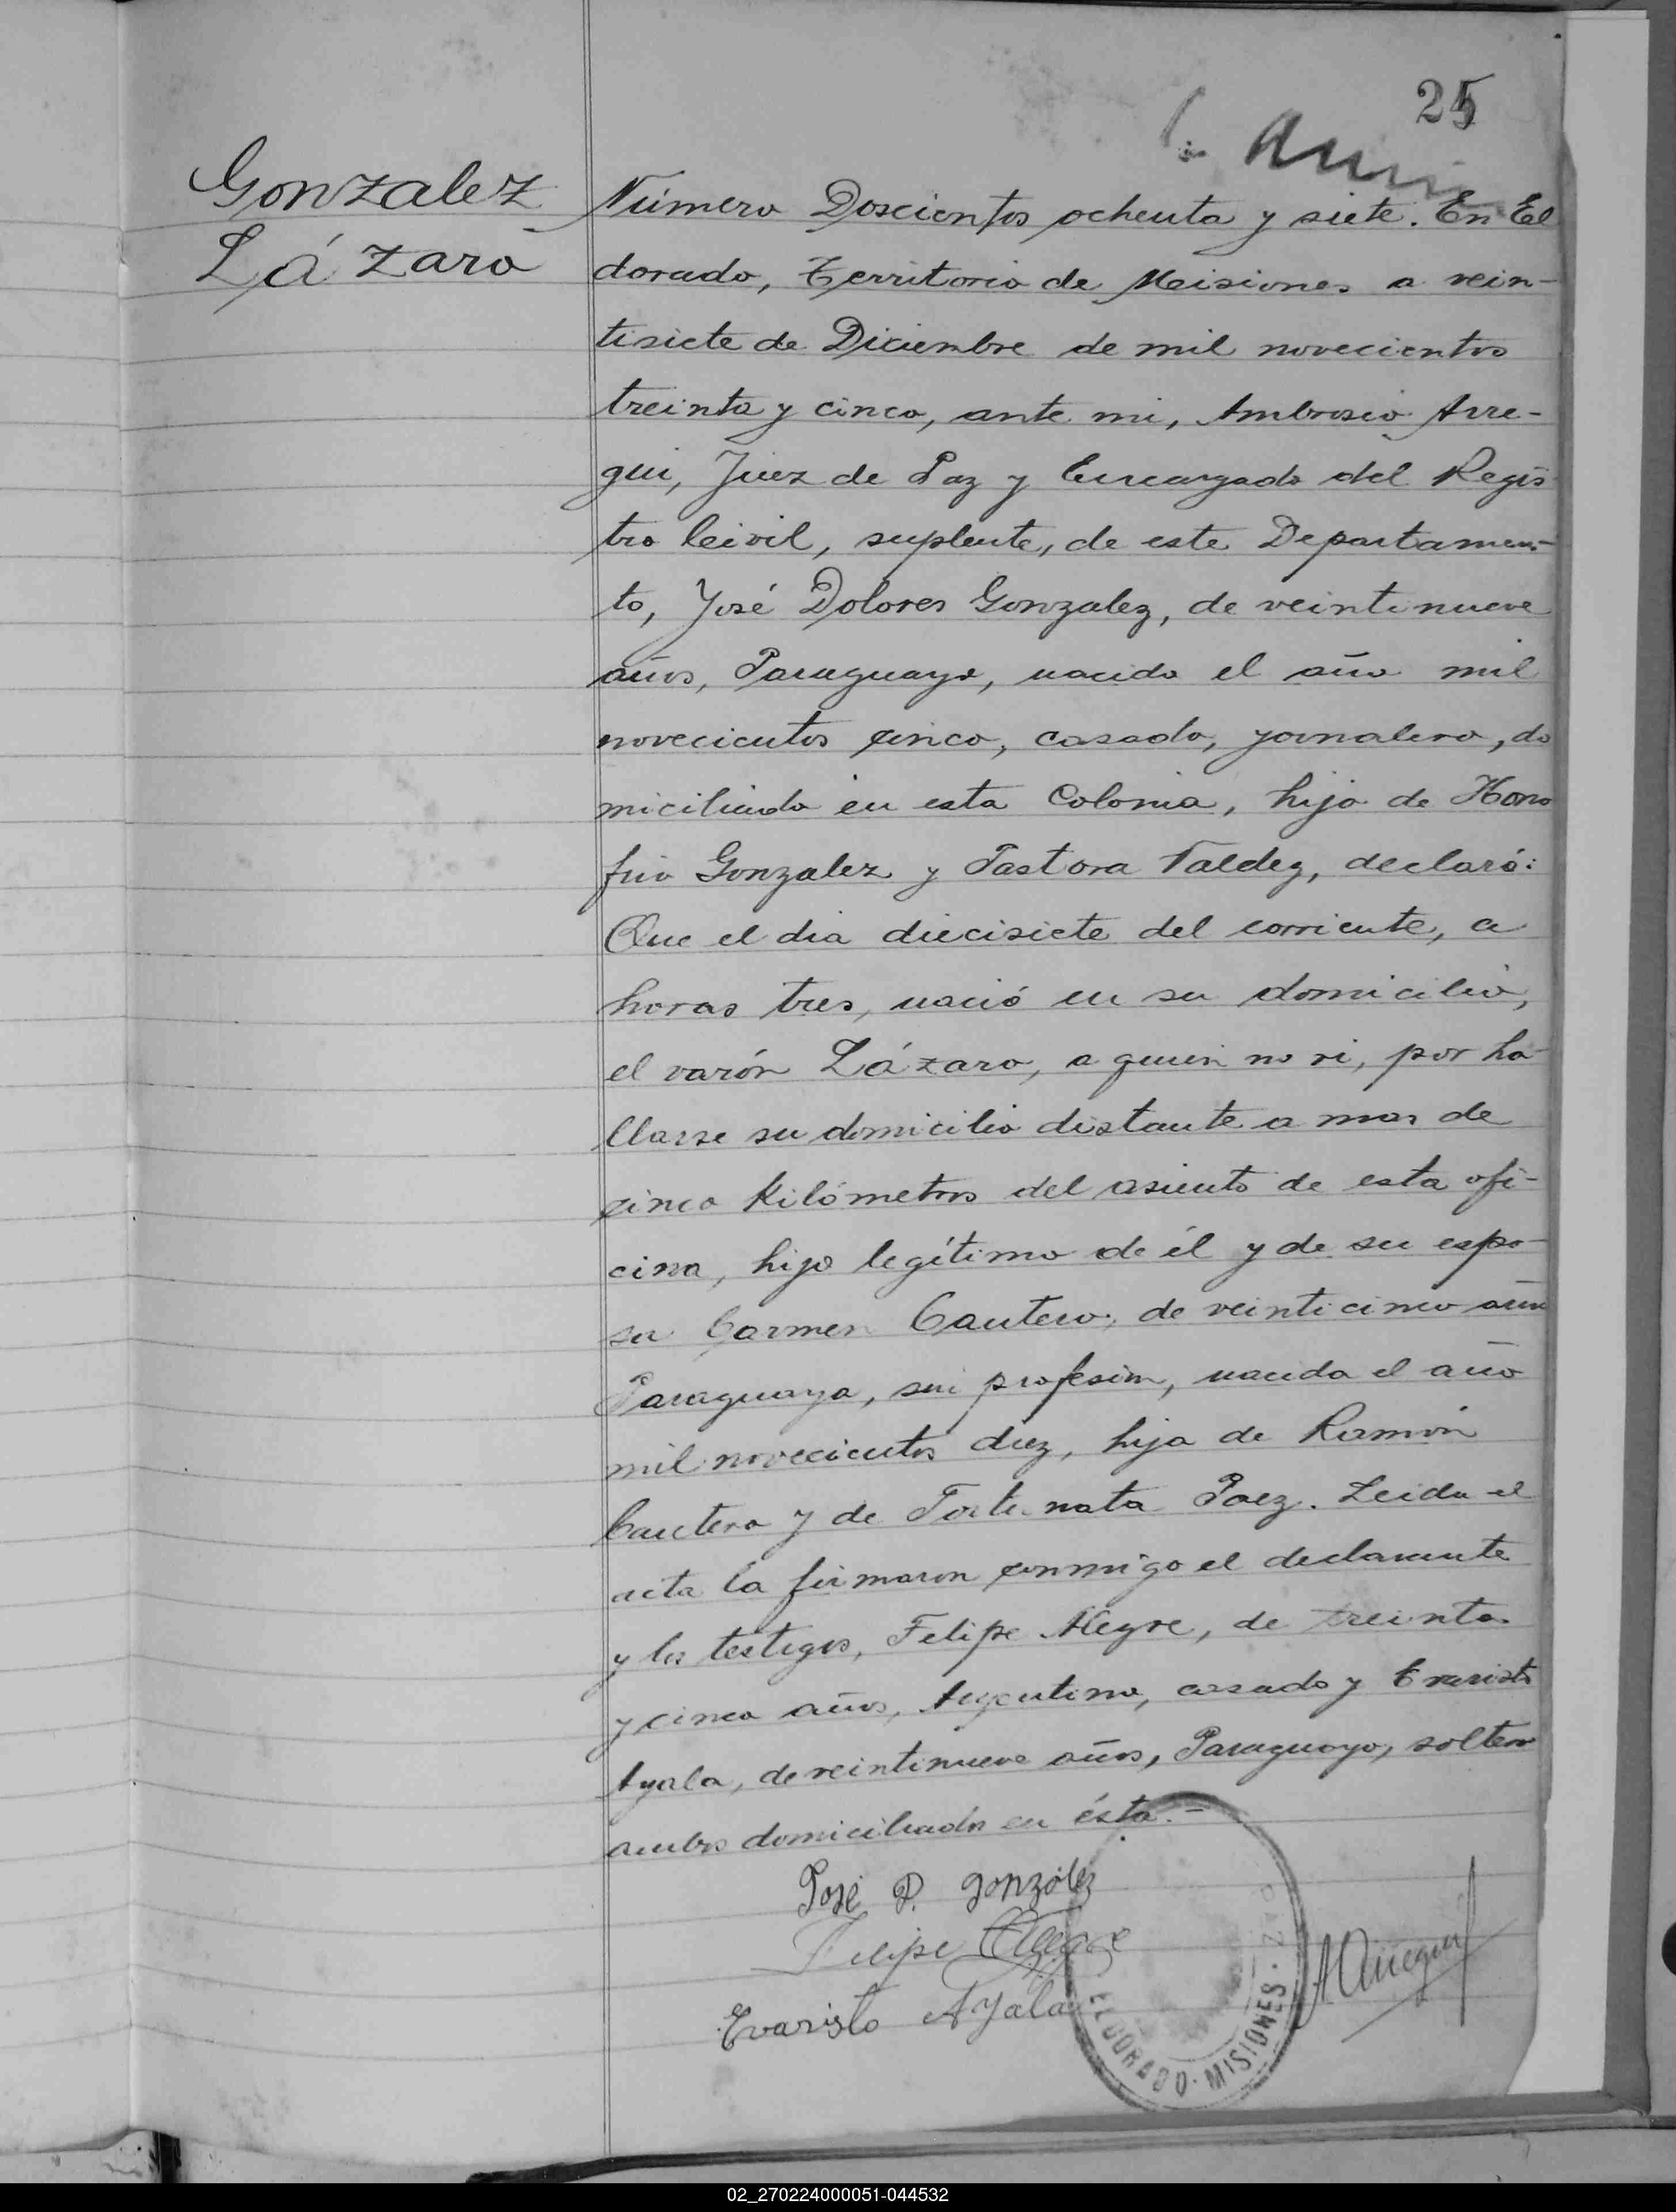 25
Gonzalez
Lázaro
Número Doscientos ochenta y siete. En El
dorado, Territorio de Misiones a vein-
tisiete de Diciembre de mil novecientos
treinta y cinco, ante mi, Ambrosio Arre-
gui, Juez de Paz y Encargado del Regis
tro Civil, suplente, de este Departamen-
to, José Dolores Gonzalez, de veintinueve
años, Paraguayo, nacido el año mil
novecientos cinco, casado, jornalero, do
miciliado en esta Colonia, hijo de Hono
frio Gonzalez y Pastora Valdez, declaró:
Que el dia diecisiete del corriente, a
horas tres, nació en su domicilio,
el varón Lázaro, a quien no vi, por ha-
llarse su domicilio distante a mas de
cinco kilómetros del asiento de esta ofi-
cina, hijo legítimo de él y de su espo-
sa Carmen Cantero, de veinticinco años
Paraguaya, sin profesion, nacida el año
mil novecientos diez, hija de Ramón
Cantero y de Fortunata Paez. Leida el
acta la firmaron conmigo el declarante
y los testigos, Felipe Alegre, de treinta
y cinco años, Argentino, casado y Evaristo
Ayala, de veintinueve años, Paraguayo, soltero
ambos domiciliados en ésta.-
José D. gonzález
Felipe Alegre
Evaristo Ayala
AArregui
ELDORADO · MISIONES ·
02_270224000051-044532